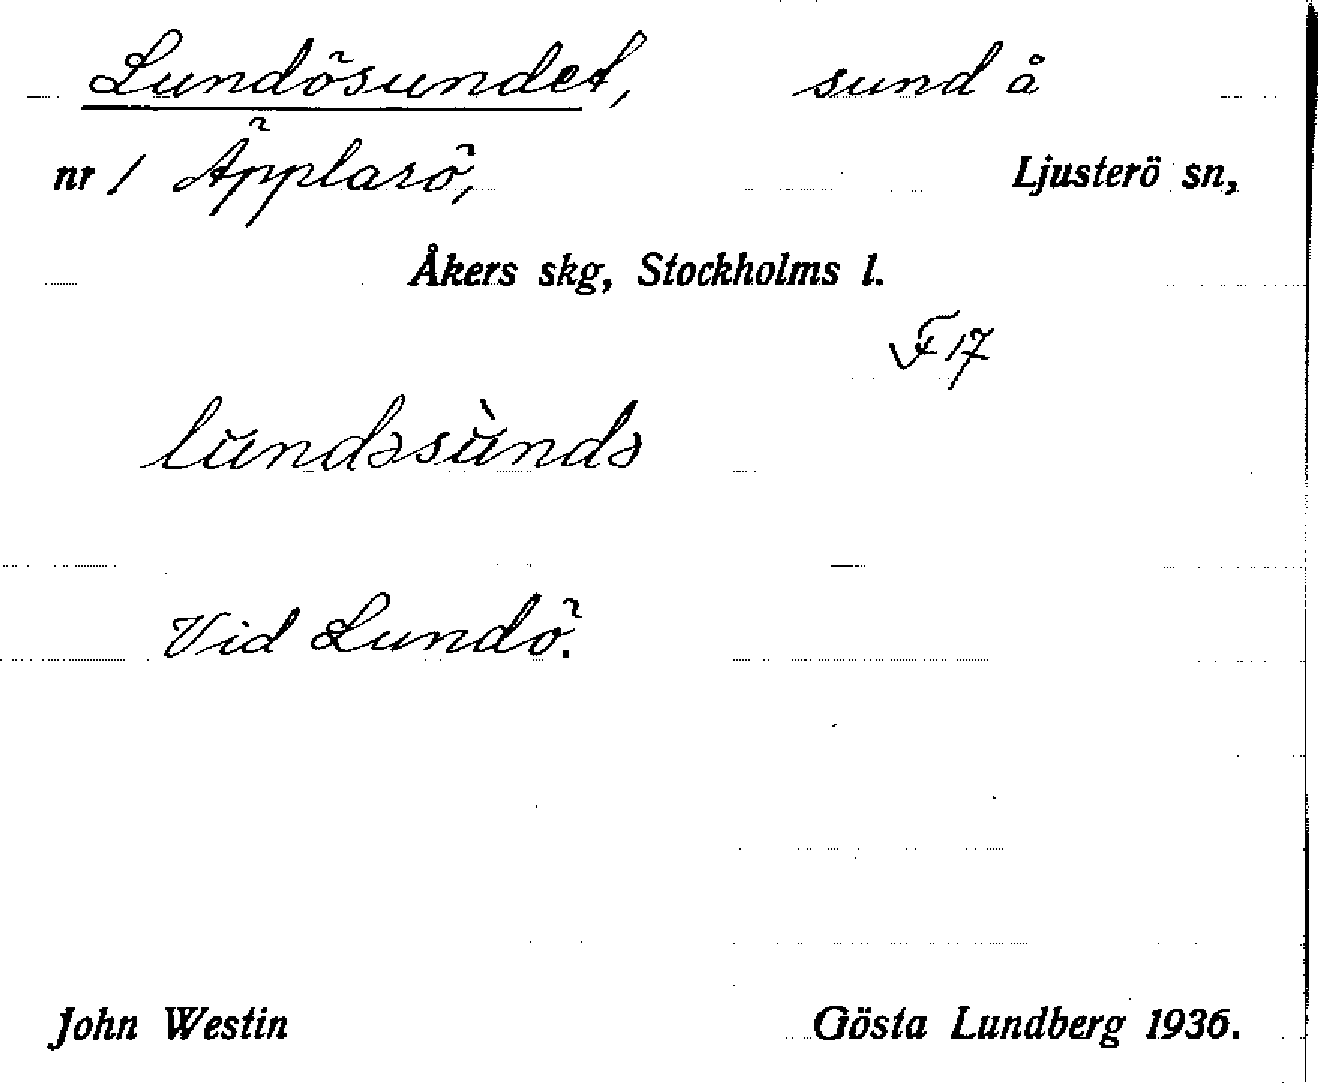 Lundösundet, sund å
nr 1 Äpplarö, Ljusterö sn,
Åkers skg, Stockholms l.
F 17
lundəsùndə
Vid Lundö.
John Westin Gösta Lundberg 1936.